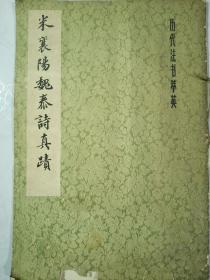 历代法书萃英
米襄陽魏泰詩真蹟